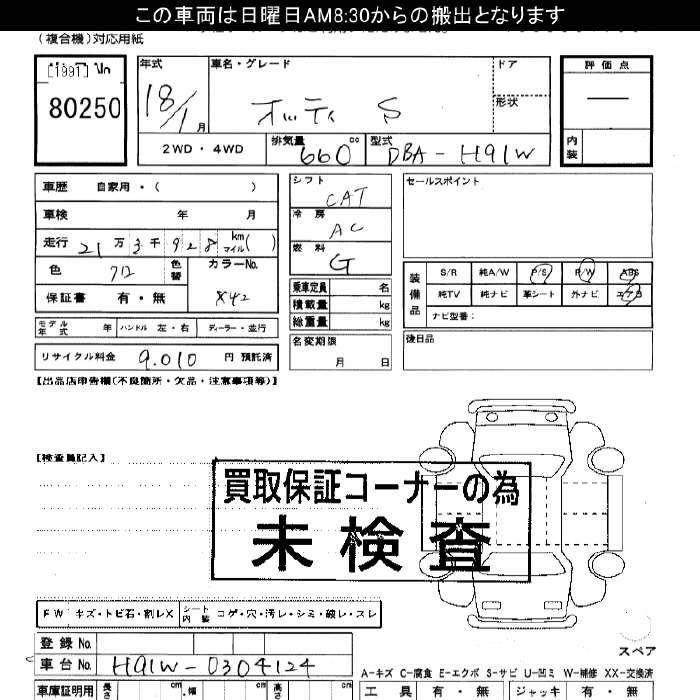 この車両は日曜日AM8:30からの搬出となります
(複合機)対応用紙
[1991] Vn
80250
年式 18/1 月
車名・グレード オッティ S
ドア
形状
評価点 —
内装
2WD・4WD
排気量 660 cc
型式 DBA-H91W
車歴 自家用・( )
車検 年 月
走行 21万3千928 km マイル( )
色
色替
カラーNo. X42
保証書 有・無
シフト CAT
冷房 AC
燃料 G
乗車定員 名
積載量 kg
総重量 kg
セールスポイント
装備品
S/R 純A/W P/S P/W ABS
純TV 純ナビ 革シート 外ナビ エアB
ナビ型番:
モデル年式 年 ハンドル 左・右 ディーラー・並行
名変期限 月 日
後日品
リサイクル料金 9,010 円 預託済
【出品店申告欄(不良箇所・欠品・注意事項等)】
【検査員記入】
買取保証コーナーの為
未検査
FW キズ・トビ石・割レX
シート内装 コゲ・穴・汚レ・シミ・破レ・スレ
登録No.
車台No. H91W-0304124
スペア
A-キズ C-腐食 E-エクボ S-サビ U-凹ミ W-補修 XX-交換済
車庫証明用 長さ cm 幅 cm 高さ cm
工具 有・無 ジャッキ 有・無